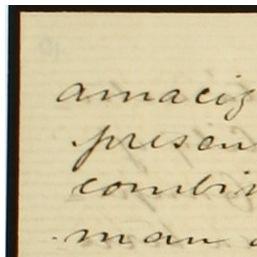 amaciz
presen
combin
man